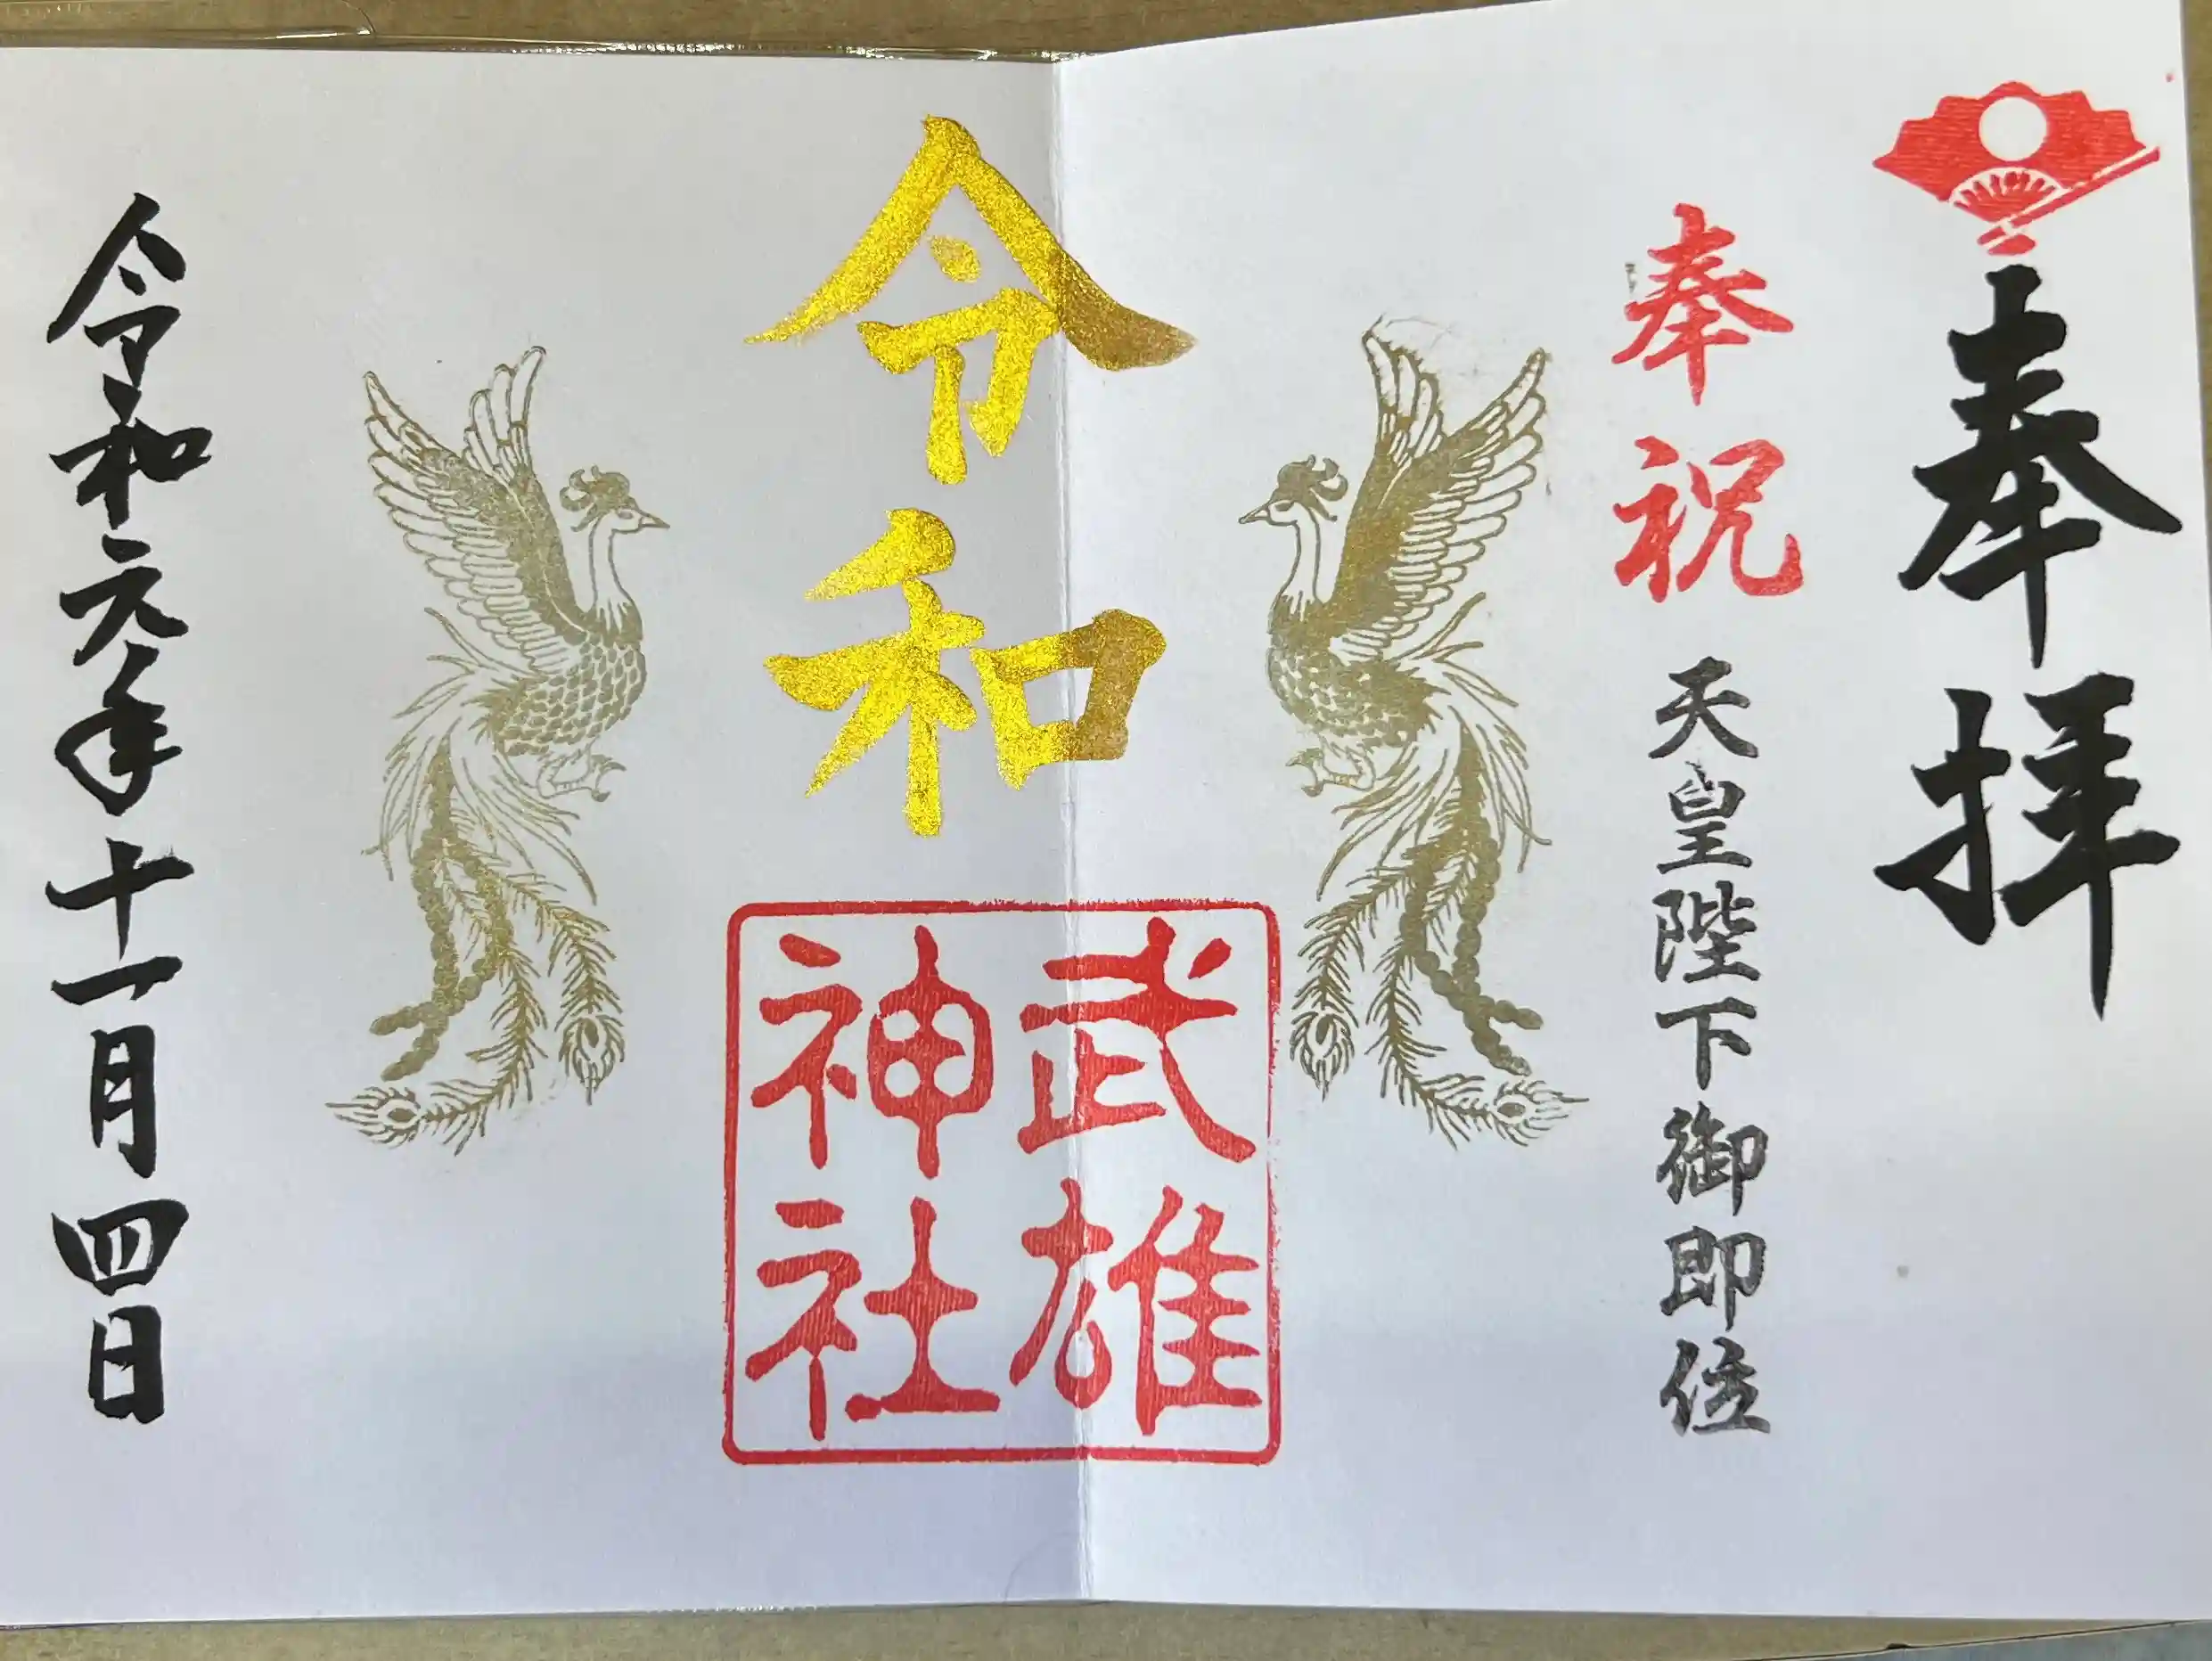 奉拝
奉祝 天皇陛下御即位
令和
武雄
神社
令和元年十一月四日